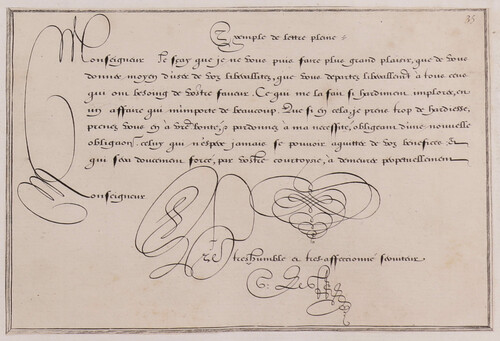 35
Exemple de lettre pleine
Monseigneur Je sçay que je ne vous puis faire plus grand plaisir, que de vous
donner moyen d'user de voz liberallitez, que vous departez liberallement a tous ceux
qui ont besoing de vostre faveur. Ce qui me la fait si hardiment implorer, en
un affaire qui m'importe de beaucoup. Que si en cela, je prens trop de hardiesse,
prenez vous en à vre bonté, & pardonnez a ma necessité, obligeant d'une nouvelle
obligaon celuy qui n'espere jamais se pouvoir aquitter de voz benefices Et
qui sera doucement forcé, par vostre courtoysie, à demeurer perpetuellement
Monseigneur
Vre treshumble et tres-affectionné serviteur